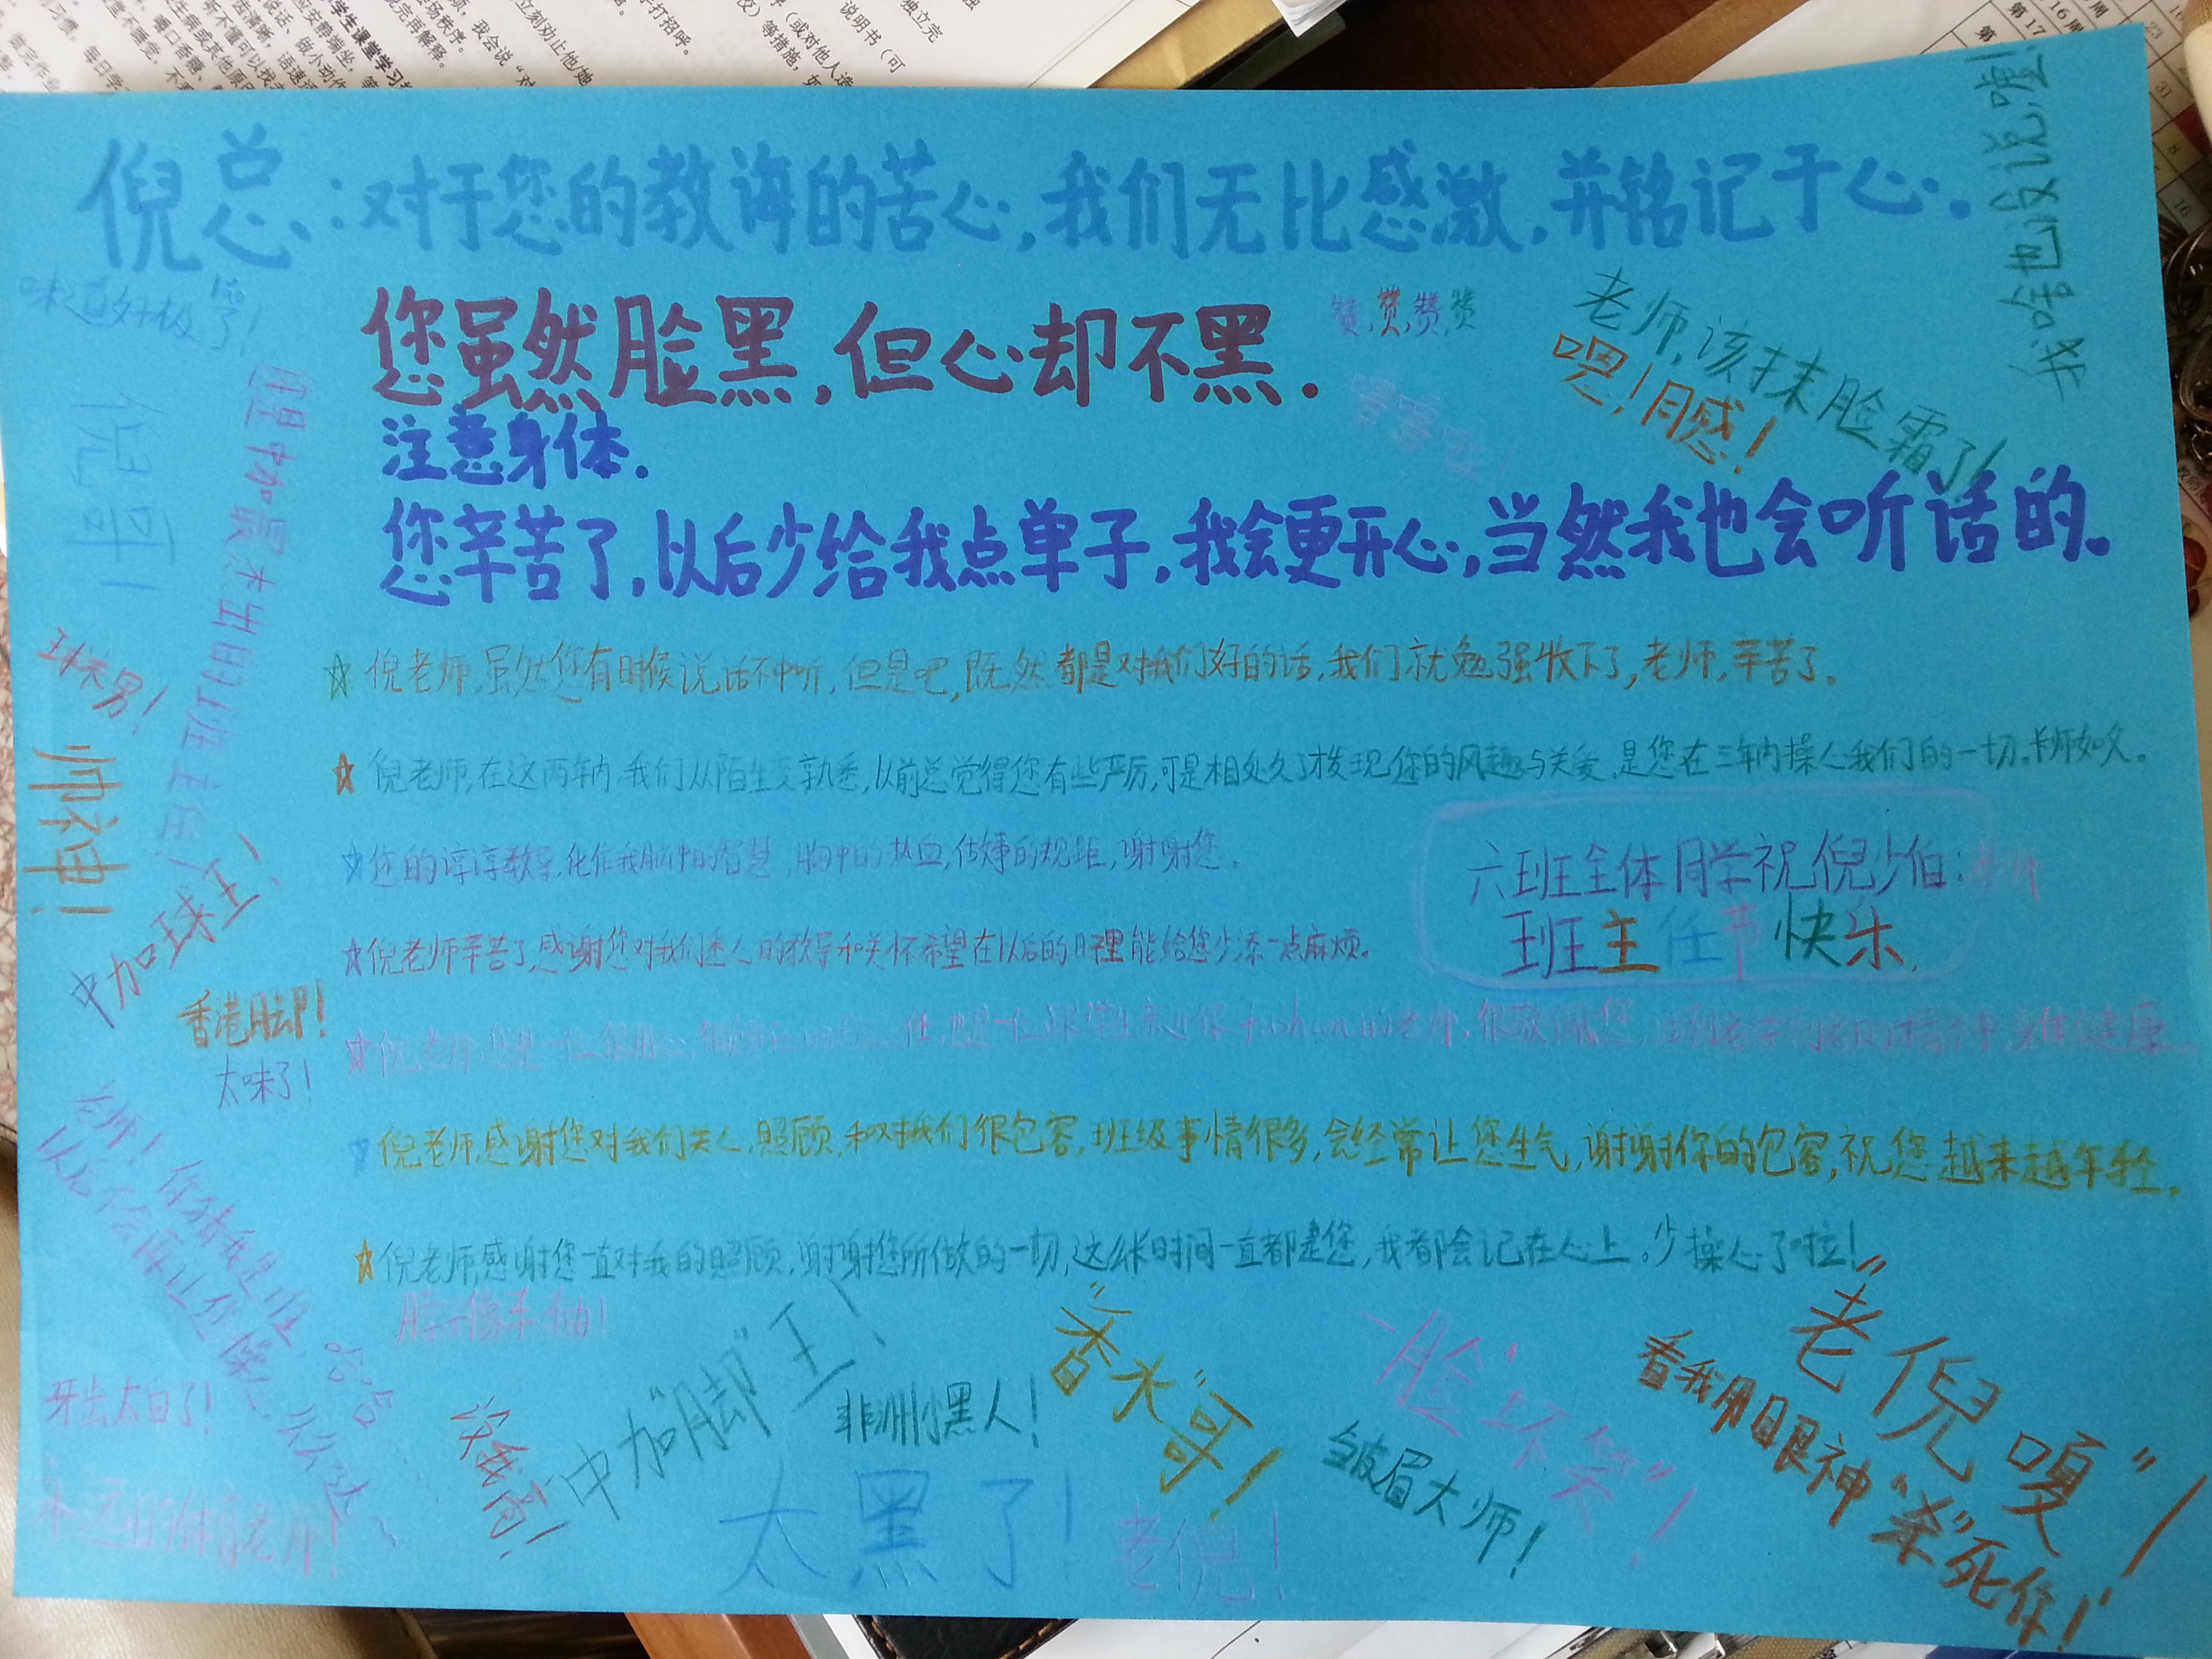 倪总:对于您的教诲的苦心,我们无比感激,并铭记于心。
我啥也没说,噻!
味道好极了!
您虽然脸黑,但心却不黑.
赞,赞,赞,赞
老师,该抹脸霜了!
嗯!同感!
注意身体.
您辛苦了,以后少给我点单子,我会更开心,当然我也会听话的。
倪哥!
中加最杰出的班主任
球衣男!
帅神!
中加球王!
香港脚!
太味了!
倪老师,虽然您有时候说话不中听,但是吧,既然都是对我们好的话,我们就勉强收下了,老师,辛苦了。
倪老师,在这两年内,我们从陌生变熟悉,以前总觉得您有些严厉,可是相处久了发现您的风趣与关爱,是您在三年内操心我们的一切.
您的谆谆教导,化作我脑中的智慧,胸中的热血,做事的规矩,谢谢您。
六班全体同学祝倪少伯:老师
班主任节快乐.
倪老师辛苦了,感谢您对我们悉心的教导和关怀希望在以后的日子里能给您少添一点麻烦。
倪老师,感谢您对我们关心,照顾,和对我们很包容,班级事情很多,会经常让您生气,谢谢你的包容,祝您越来越年轻.
倪老师,感谢您一直对我的照顾,谢谢您所做的一切,这么长时间一直都是您,我都会记在心上。少操心了啦!
老师!你猜我是谁,哈哈
以后不会再让您操心,么么达~
牙齿太白了!
永远的体育老师!
没我高!
中加"脚"王!
非洲小黑人!
太黑了!
老倪!
"香水"哥!
一脸"坏笑"!
皱眉大师!
"老倪嘎"!
看我用眼神"杀"死你!